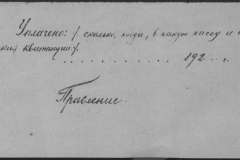 Уплачено: /. сколько, когда, в какую кассу и
квитанции/.
192 .. г.
Правление